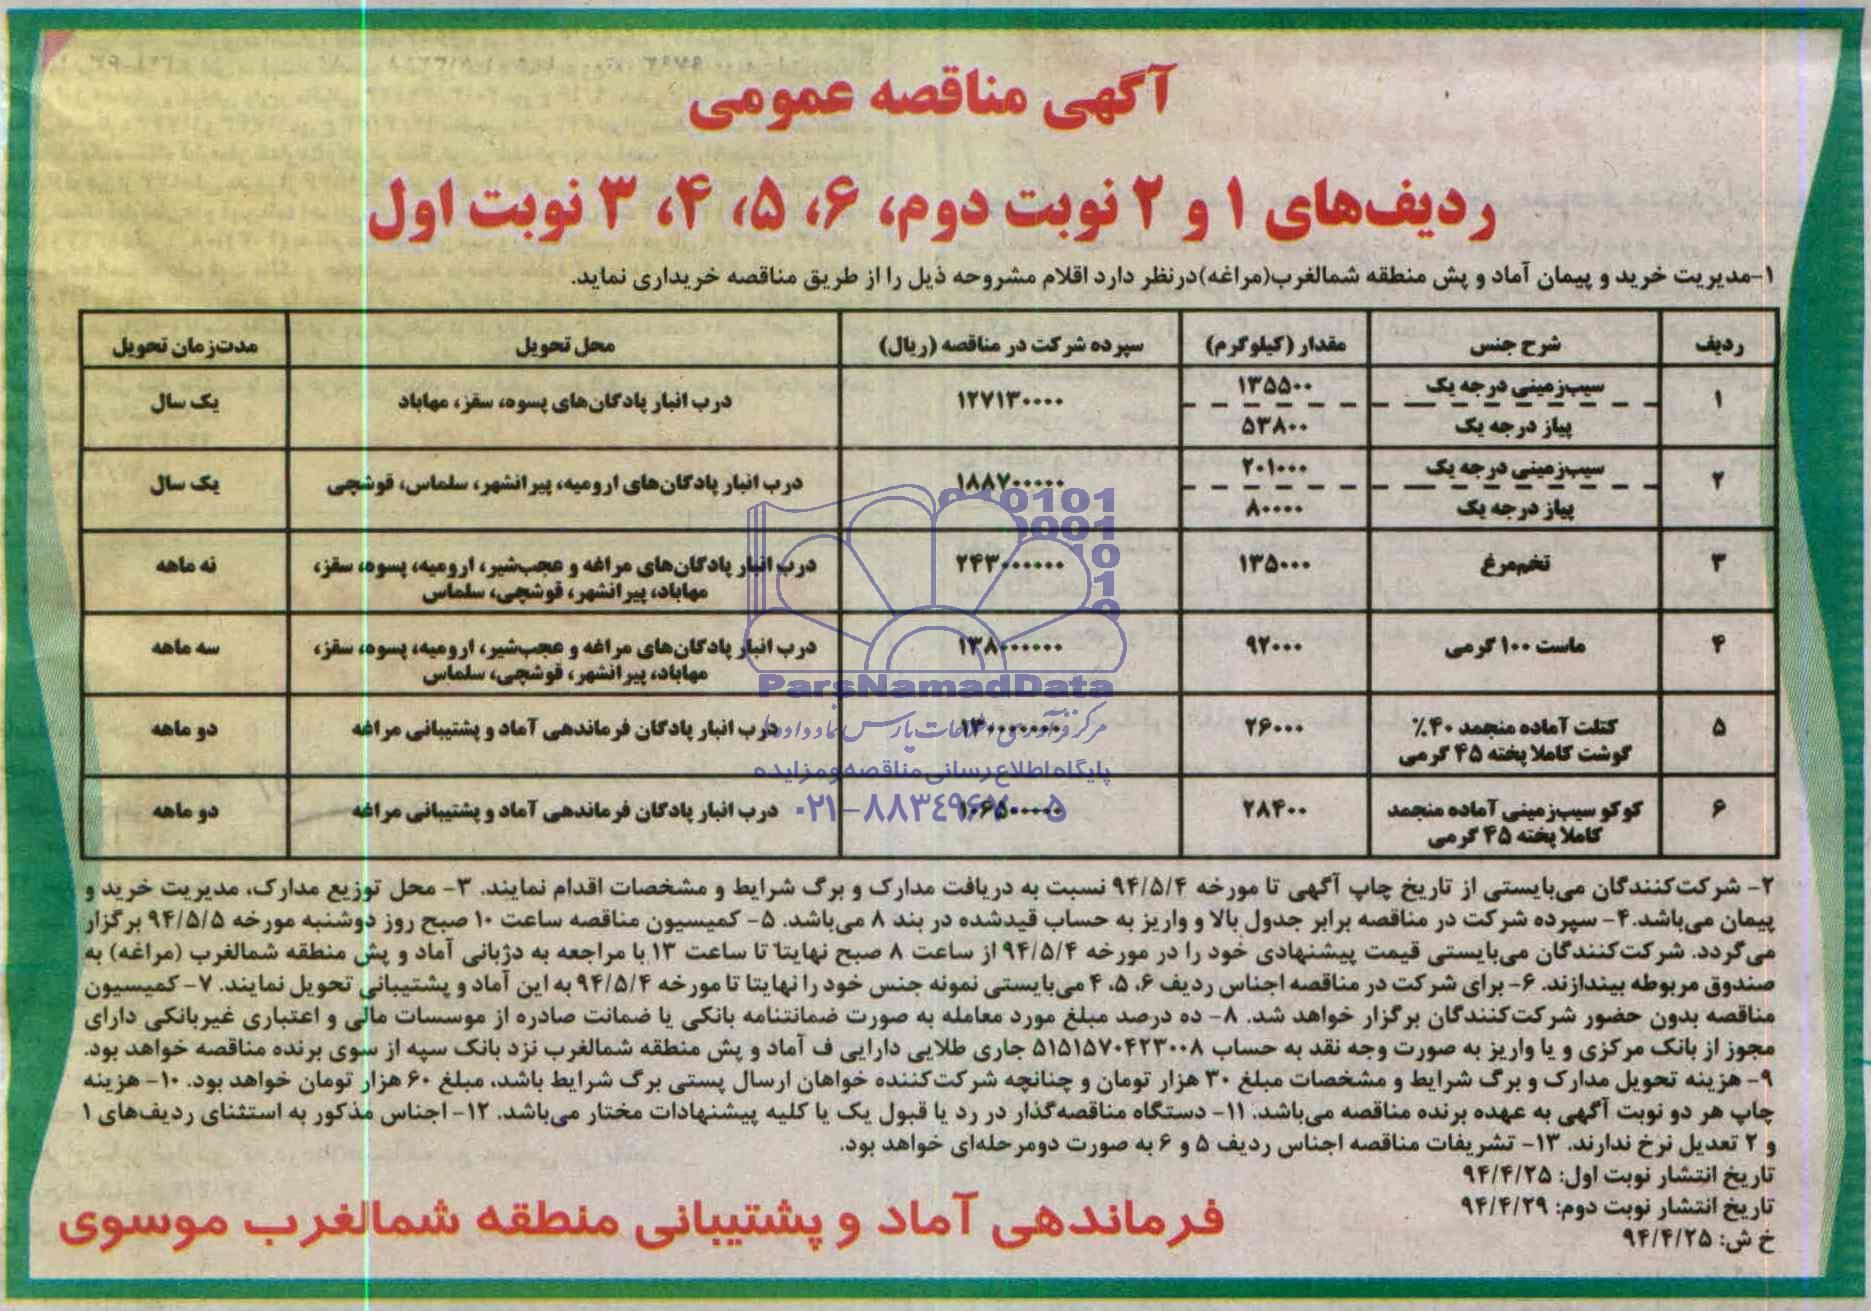 آگهی مناقصه عمومی
ردیف‌های ۱ و ۲ نوبت دوم، ۶، ۵، ۴، ۳ نوبت اول
۱-مدیریت خرید و پیمان آماد و پش منطقه شمالغرب(مراغه)درنظر دارد اقلام مشروحه ذیل را از طریق مناقصه خریداری نماید.
ردیف شرح جنس مقدار (کیلوگرم) سپرده شرکت در مناقصه (ریال) محل تحویل مدت‌زمان تحویل
۱ سیب‌زمینی درجه یک ۱۳۵۵۰۰ ۱۲۷۱۳۰۰۰۰ درب انبار پادگان‌های پسوه، سقز، مهاباد یک سال
پیاز درجه یک ۵۳۸۰۰
۲ سیب‌زمینی درجه یک ۲۰۱۰۰۰ ۱۸۸۷۰۰۰۰۰ درب انبار پادگان‌های ارومیه، پیرانشهر، سلماس، قوشچی یک سال
پیاز درجه یک ۸۰۰۰۰
۳ تخم‌مرغ ۱۳۵۰۰۰ ۲۴۳۰۰۰۰۰۰ درب انبار پادگان‌های مراغه و عجب‌شیر، ارومیه، پسوه، سقز، نه ماهه
مهاباد، پیرانشهر، قوشچی، سلماس
۴ ماست ۱۰۰ گرمی ۹۲۰۰۰ ۱۳۸۰۰۰۰۰۰ درب انبار پادگان‌های مراغه و عجب‌شیر، ارومیه، پسوه، سقز، سه ماهه
مهاباد، پیرانشهر، قوشچی، سلماس
۵ کتلت آماده منجمد ۴۰٪ ۲۶۰۰۰ درب انبار پادگان فرماندهی آماد و پشتیبانی مراغه دو ماهه
گوشت کاملا پخته ۴۵ گرمی
۶ کوکو سیب‌زمینی آماده منجمد ۲۸۴۰۰ ۱۰۶۵۰۰۰۰۰ درب انبار پادگان فرماندهی آماد و پشتیبانی مراغه دو ماهه
کاملا پخته ۴۵ گرمی
ParsNamadData
مرکز فرآوری اطلاعات پارس نماد داده‌ها
پایگاه اطلاع رسانی مناقصه و مزایده
۰۲۱-۸۸۳۴۹۶۷۰-۵
۲- شرکت‌کنندگان می‌بایستی از تاریخ چاپ آگهی تا مورخه ۹۴/۵/۴ نسبت به دریافت مدارک و برگ شرایط و مشخصات اقدام نمایند. ۳- محل توزیع مدارک، مدیریت خرید و
پیمان می‌باشد.۴- سپرده شرکت در مناقصه برابر جدول بالا و واریز به حساب قیدشده در بند ۸ می‌باشد. ۵- کمیسیون مناقصه ساعت ۱۰ صبح روز دوشنبه مورخه ۹۴/۵/۵ برگزار
می‌گردد. شرکت‌کنندگان می‌بایستی قیمت پیشنهادی خود را در مورخه ۹۴/۵/۴ از ساعت ۸ صبح نهایتا تا ساعت ۱۳ با مراجعه به دژبانی آماد و پش منطقه شمالغرب (مراغه) به
صندوق مربوطه بیندازند. ۶- برای شرکت در مناقصه اجناس ردیف ۶، ۵، ۴ می‌بایستی نمونه جنس خود را نهایتا تا مورخه ۹۴/۵/۴ به این آماد و پشتیبانی تحویل نمایند. ۷- کمیسیون
مناقصه بدون حضور شرکت‌کنندگان برگزار خواهد شد. ۸- ده درصد مبلغ مورد معامله به صورت ضمانتنامه بانکی یا ضمانت صادره از موسسات مالی و اعتباری غیربانکی دارای
مجوز از بانک مرکزی و یا واریز به صورت وجه نقد به حساب ۵۱۵۱۵۷۰۴۲۳۰۰۸ جاری طلایی دارایی ف آماد و پش منطقه شمالغرب نزد بانک سپه از سوی برنده مناقصه خواهد بود.
۹- هزینه تحویل مدارک و برگ شرایط و مشخصات مبلغ ۳۰ هزار تومان و چنانچه شرکت‌کننده خواهان ارسال پستی برگ شرایط باشد، مبلغ ۶۰ هزار تومان خواهد بود. ۱۰- هزینه
چاپ هر دو نوبت آگهی به عهده برنده مناقصه می‌باشد. ۱۱- دستگاه مناقصه‌گذار در رد یا قبول یک یا کلیه پیشنهادات مختار می‌باشد. ۱۲- اجناس مذکور به استثنای ردیف‌های ۱
و ۲ تعدیل نرخ ندارند. ۱۳- تشریفات مناقصه اجناس ردیف ۵ و ۶ به صورت دومرحله‌ای خواهد بود.
تاریخ انتشار نوبت اول: ۹۴/۴/۲۵
تاریخ انتشار نوبت دوم: ۹۴/۴/۲۹
خ ش: ۹۴/۴/۲۵
فرماندهی آماد و پشتیبانی منطقه شمالغرب موسوی